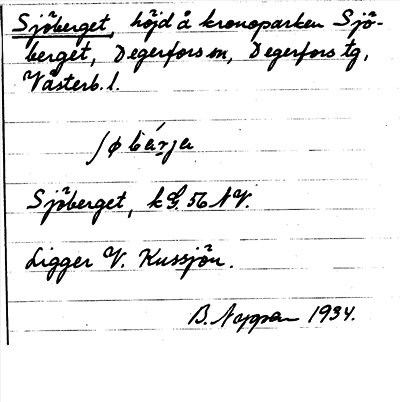 Sjöberget, höjd å kronoparken Sjö-
berget, Degerfors sn, Degerfors tg,
Västerb. l.
Sjöberget, k G. 56 NV.
Ligger V. Kussjön.
B. 1934.